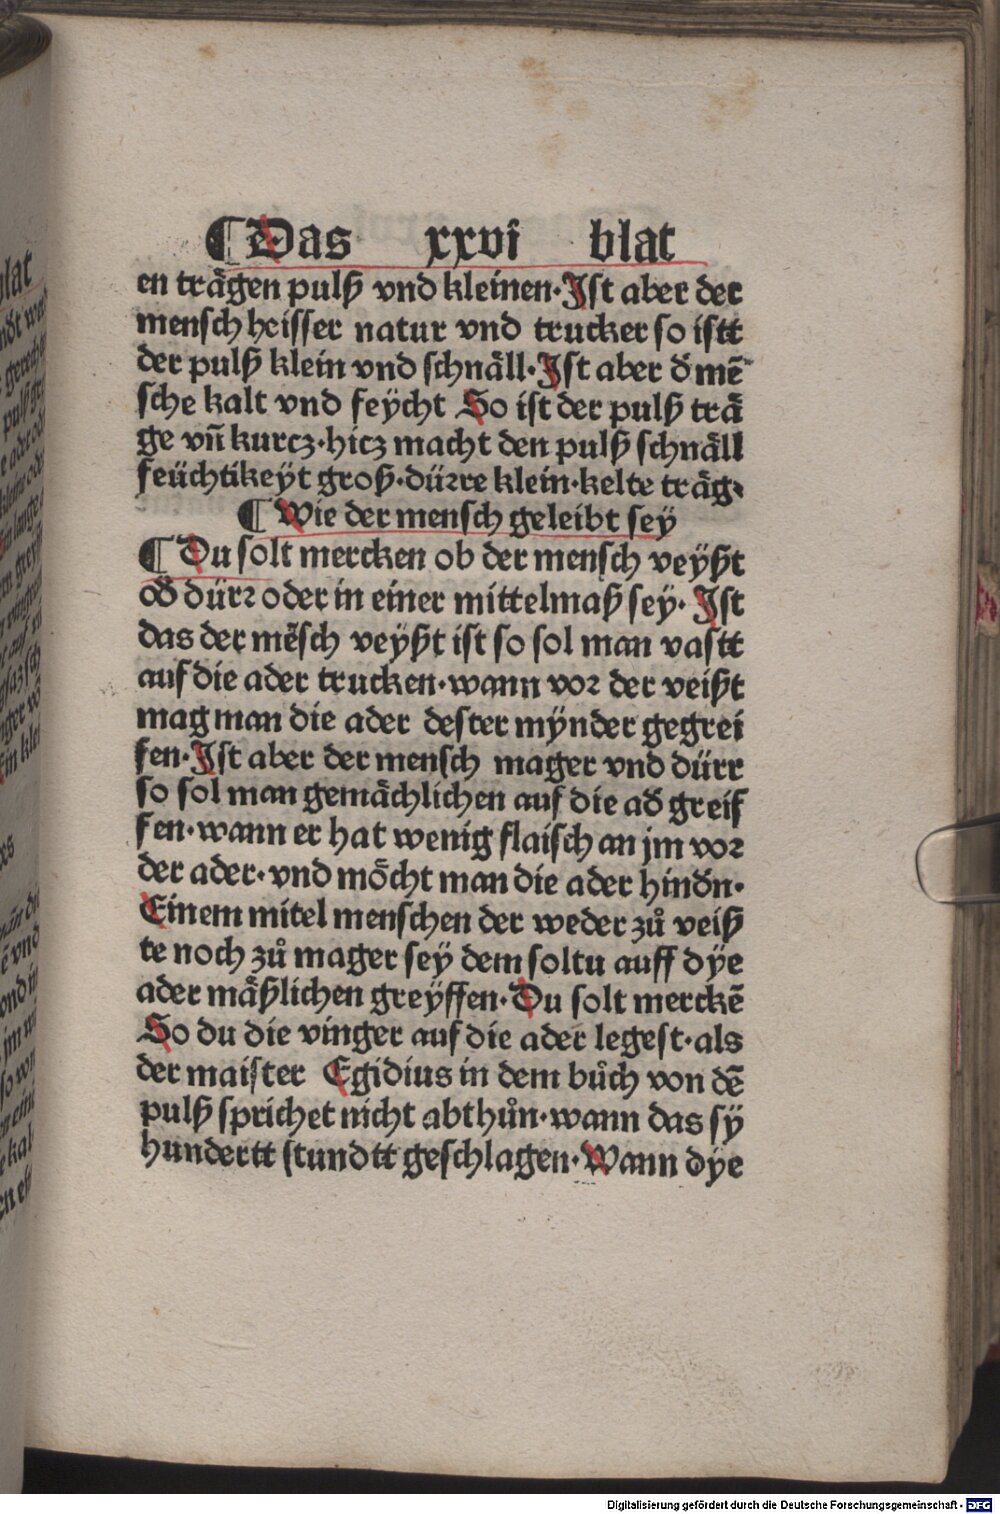 ¶ Das xxvi blat
en trägen pulß vnd kleinen· Jst aber der
mensch heisser natur vnd trucker so istt
der pulß klein vnd schnäll· Jst aber d̄ mē
sche kalt vnd feycht So ist der pulß trä
ge vn̄ kurcz· hicz macht den pulß schnäll
feüchtikeyt groß· dürre klein· kelte träg·
¶ Wie der mensch geleibt sey
¶ Du solt mercken ob der mensch veyßt
od̄ dürr oder in einer mittelmaß sey· Jst
das der mēsch veyßt ist so sol man vastt
auf die ader trucken· wann vor der veißt
mag man die ader dester mÿnder gegrei
fen· Jst aber der mensch mager vnd dürr
so sol man gemächlichen auf die ad̄ greif
fen· wann er hat wenig flaisch an jm vor
der ader· vnd möcht man die ader hind̄n·
Einem mitel menschen der weder zů veiß
te noch zů mager sey dem soltu auff dÿe
ader mäßlichen greÿffen· Du solt merckē
So du die vinger auf die ader legest· als
der maister Egidius in dem bůch von dē
pulß sprichet nicht abthůn· wann das sÿ
hundertt stundtt geschlagen· Wann dÿe
Digitalisierung gefördert durch die Deutsche Forschungsgemeinschaft - DFG